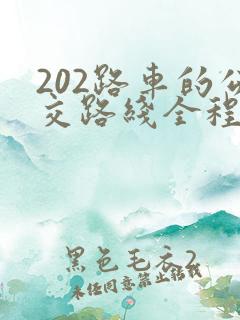 202路車的公
交路綫全程
黑色毛衣2
未經同意禁止轉載